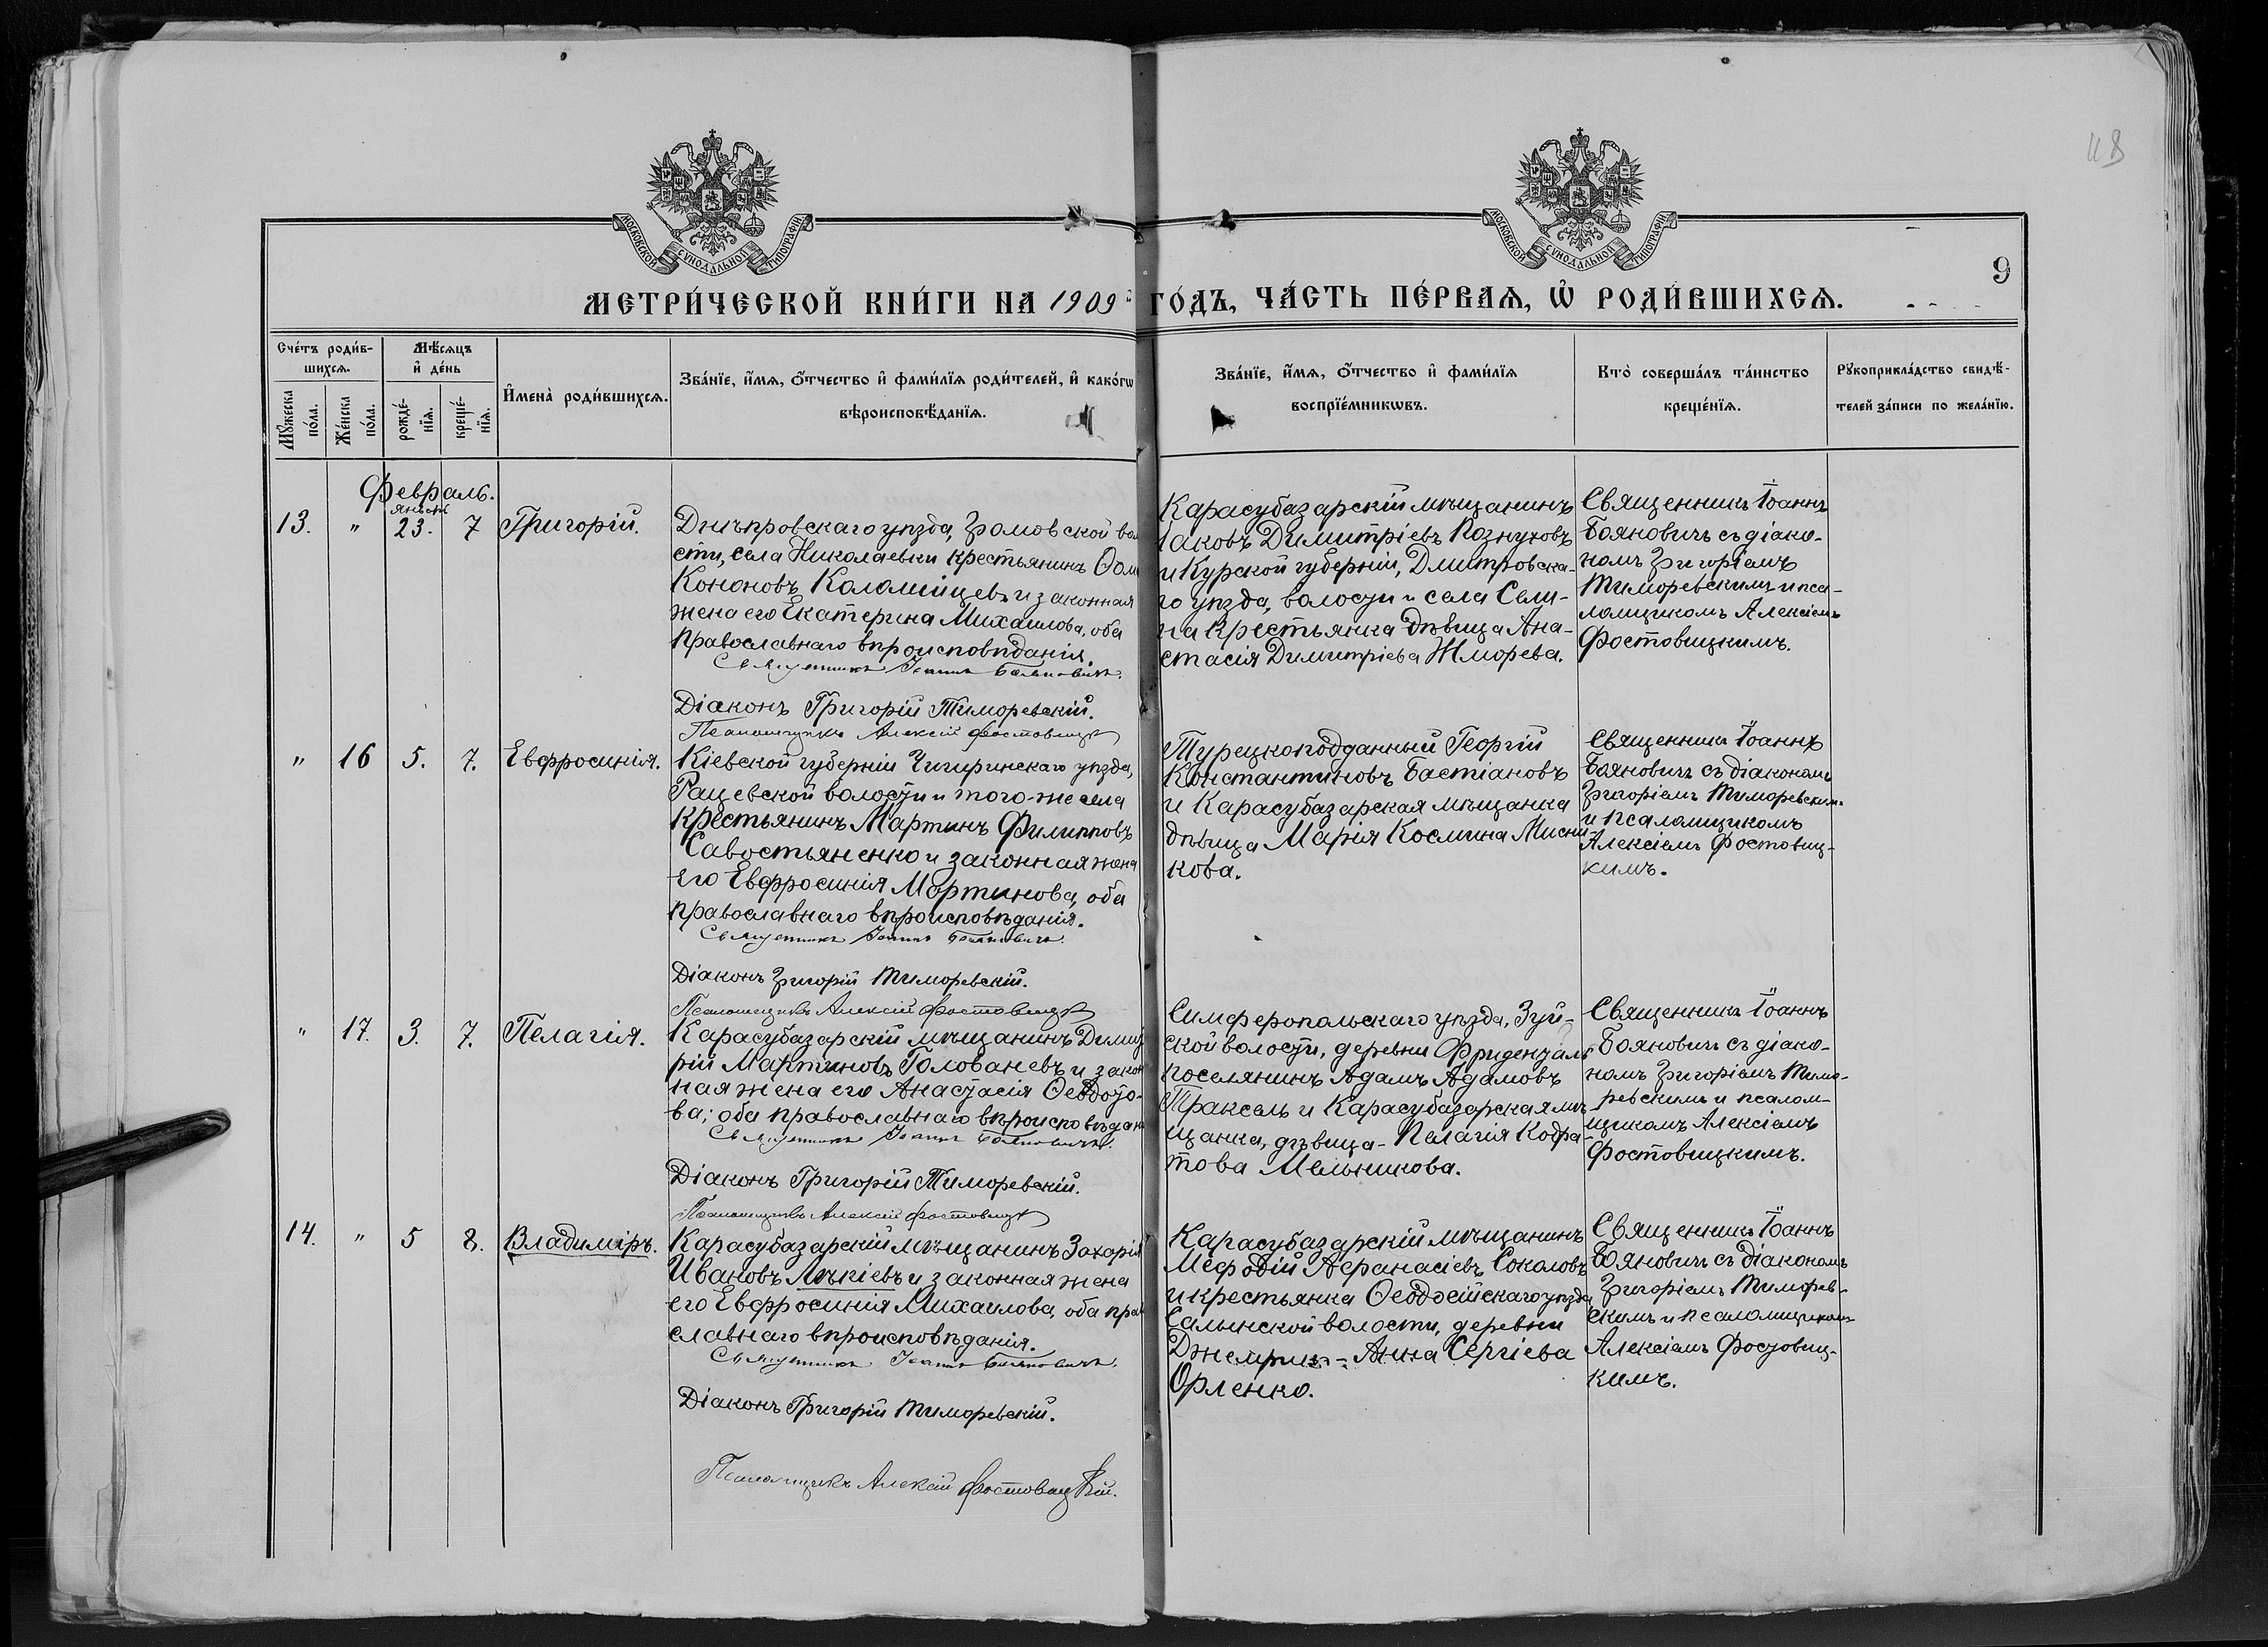 МОСКОВСКОЙ СѴНОДАЛЬНОЙ ТИПОГРАФІИ
МОСКОВСКОЙ СѴНОДАЛЬНОЙ ТИПОГРАФІИ
9
МЕТРИ́ЧЕСКОЙ КНИ́ГИ НА 1909й ГО́ДЪ, ЧА́СТЬ ПЕ́РВАѦ, Ѡ҆ РОДИ́ВШИХСѦ.
Сче́тъ роди́в-
шихсѧ.
Мѣ́сѧцъ
и҆ де́нь
Мꙋ́жеска по́ла.
Же́нска по́ла.
рожде́-нїѧ.
креще́-нїѧ.
И҆мена̀ роди́вшихсѧ.
Зва́нїе, и҆́мѧ, ѻ҆́тчество и҆ фами́лїѧ роди́телей, и҆ како́гѡ
вѣроисповѣ́данїѧ.
Зва́нїе, и҆́мѧ, ѻ҆́тчество и҆ фами́лїѧ
воспрїе́мникѡвъ.
Кто̀ соверша́лъ та́инство
креще́нїѧ.
Рꙋкоприкла́дство свидѣ́-
телей за́писи по жела́нїю.
Февраль.
13. " 23. 7 Григорій.
Днѣпровскаго уѣзда, Громовской во
сти, села Николаевки крестьянинъ Ѳом
Кононовъ Коломійцевъ и законная
жена его Екатерина Михаилова, оба
православнаго вѣроисповѣданія.
Священникъ Іоаннъ Бояновичъ.
Діаконъ Григорій Тиморевскій.
Псаломщикъ Алексій Фостовицк
Карасубазарскій мѣщанинъ
Іаковъ Димитріевъ Познуховъ
и Курской губерніи, Дмитровска-
го уѣзда, волости и села Сели-
на крестьянка дѣвица Ана-
стасія Димитріева Жморева.
Священникъ Іоаннъ
Бояновичъ съ діако-
номъ Григоріемъ
Тиморевскимъ и пса-
ломщикомъ Алексіемъ
Фостовицкимъ.
" 16 5. 7. Евфросинія.
Кіевской губерніи Чигиринскаго уѣзда,
Рацевской волости и того-же села
крестьянинъ Мартинъ Филипповъ
Савостьяненко и законная жена
его Евфросинія Мартинова, оба
православнаго вѣроисповѣданія.
Священникъ Іоаннъ Бояновичъ.
Діаконъ Григорій Тиморевскій.
Псаломщикъ Алексій Фостовицк
Турецкоподданный Георгій
Константиновъ Бастіановъ
и Карасубазарская мѣщанка
дѣвица Марія Космина Мисни-
кова.
Священникъ Іоаннъ
Бояновичъ съ діакономъ
Григоріемъ Тиморевскимъ
и псаломщикомъ
Алексіемъ Фостовиц-
кимъ.
" 17. 3. 7. Пелагія.
Карасубазарскій мѣщанинъ Димит
рій Мартиновъ Голованевъ и закон
ная жена его Анастасія Ѳеодото-
ва; оба православнаго вѣроисповѣдан
Священникъ Іоаннъ Бояновичъ.
Діаконъ Григорій Тиморевскій.
Псаломщикъ Алексій Фостовицк
Симферопольскаго уѣзда, Зуй-
ской волости, деревни Фриденталь
поселянинъ Адамъ Адамовъ
Траксель и Карасубазарская мѣ-
щанка, дѣвица - Пелагія Кодра-
това Мельникова.
Священникъ Іоаннъ
Бояновичъ съ діако-
номъ Григоріемъ Тимо-
ревскимъ и псалом-
щикомъ Алексіемъ
Фостовицкимъ.
14. " 5 8. Владиміръ.
Карасубазарскій мѣщанинъ Захарія
Ивановъ Лѣкіевъ и законная жена
его Евфросинія Михаилова, оба прав
славнаго вѣроисповѣданія.
Священникъ Іоаннъ Бояновичъ.
Діаконъ Григорій Тиморевскій.
Псаломщикъ Алексій Фостовицкій.
Карасубазарскій мѣщанинъ
Мефодій Аѳанасіевъ Соколовъ
и крестьянка Ѳеодосійскаго уѣзда
Салынской волости, деревни
- Анна Сергіева
Орленко.
Священникъ Іоаннъ
Бояновичъ съ діакономъ
Григоріемъ Тиморев-
скимъ и псаломщикомъ
Алексіемъ Фостовиц-
кимъ.